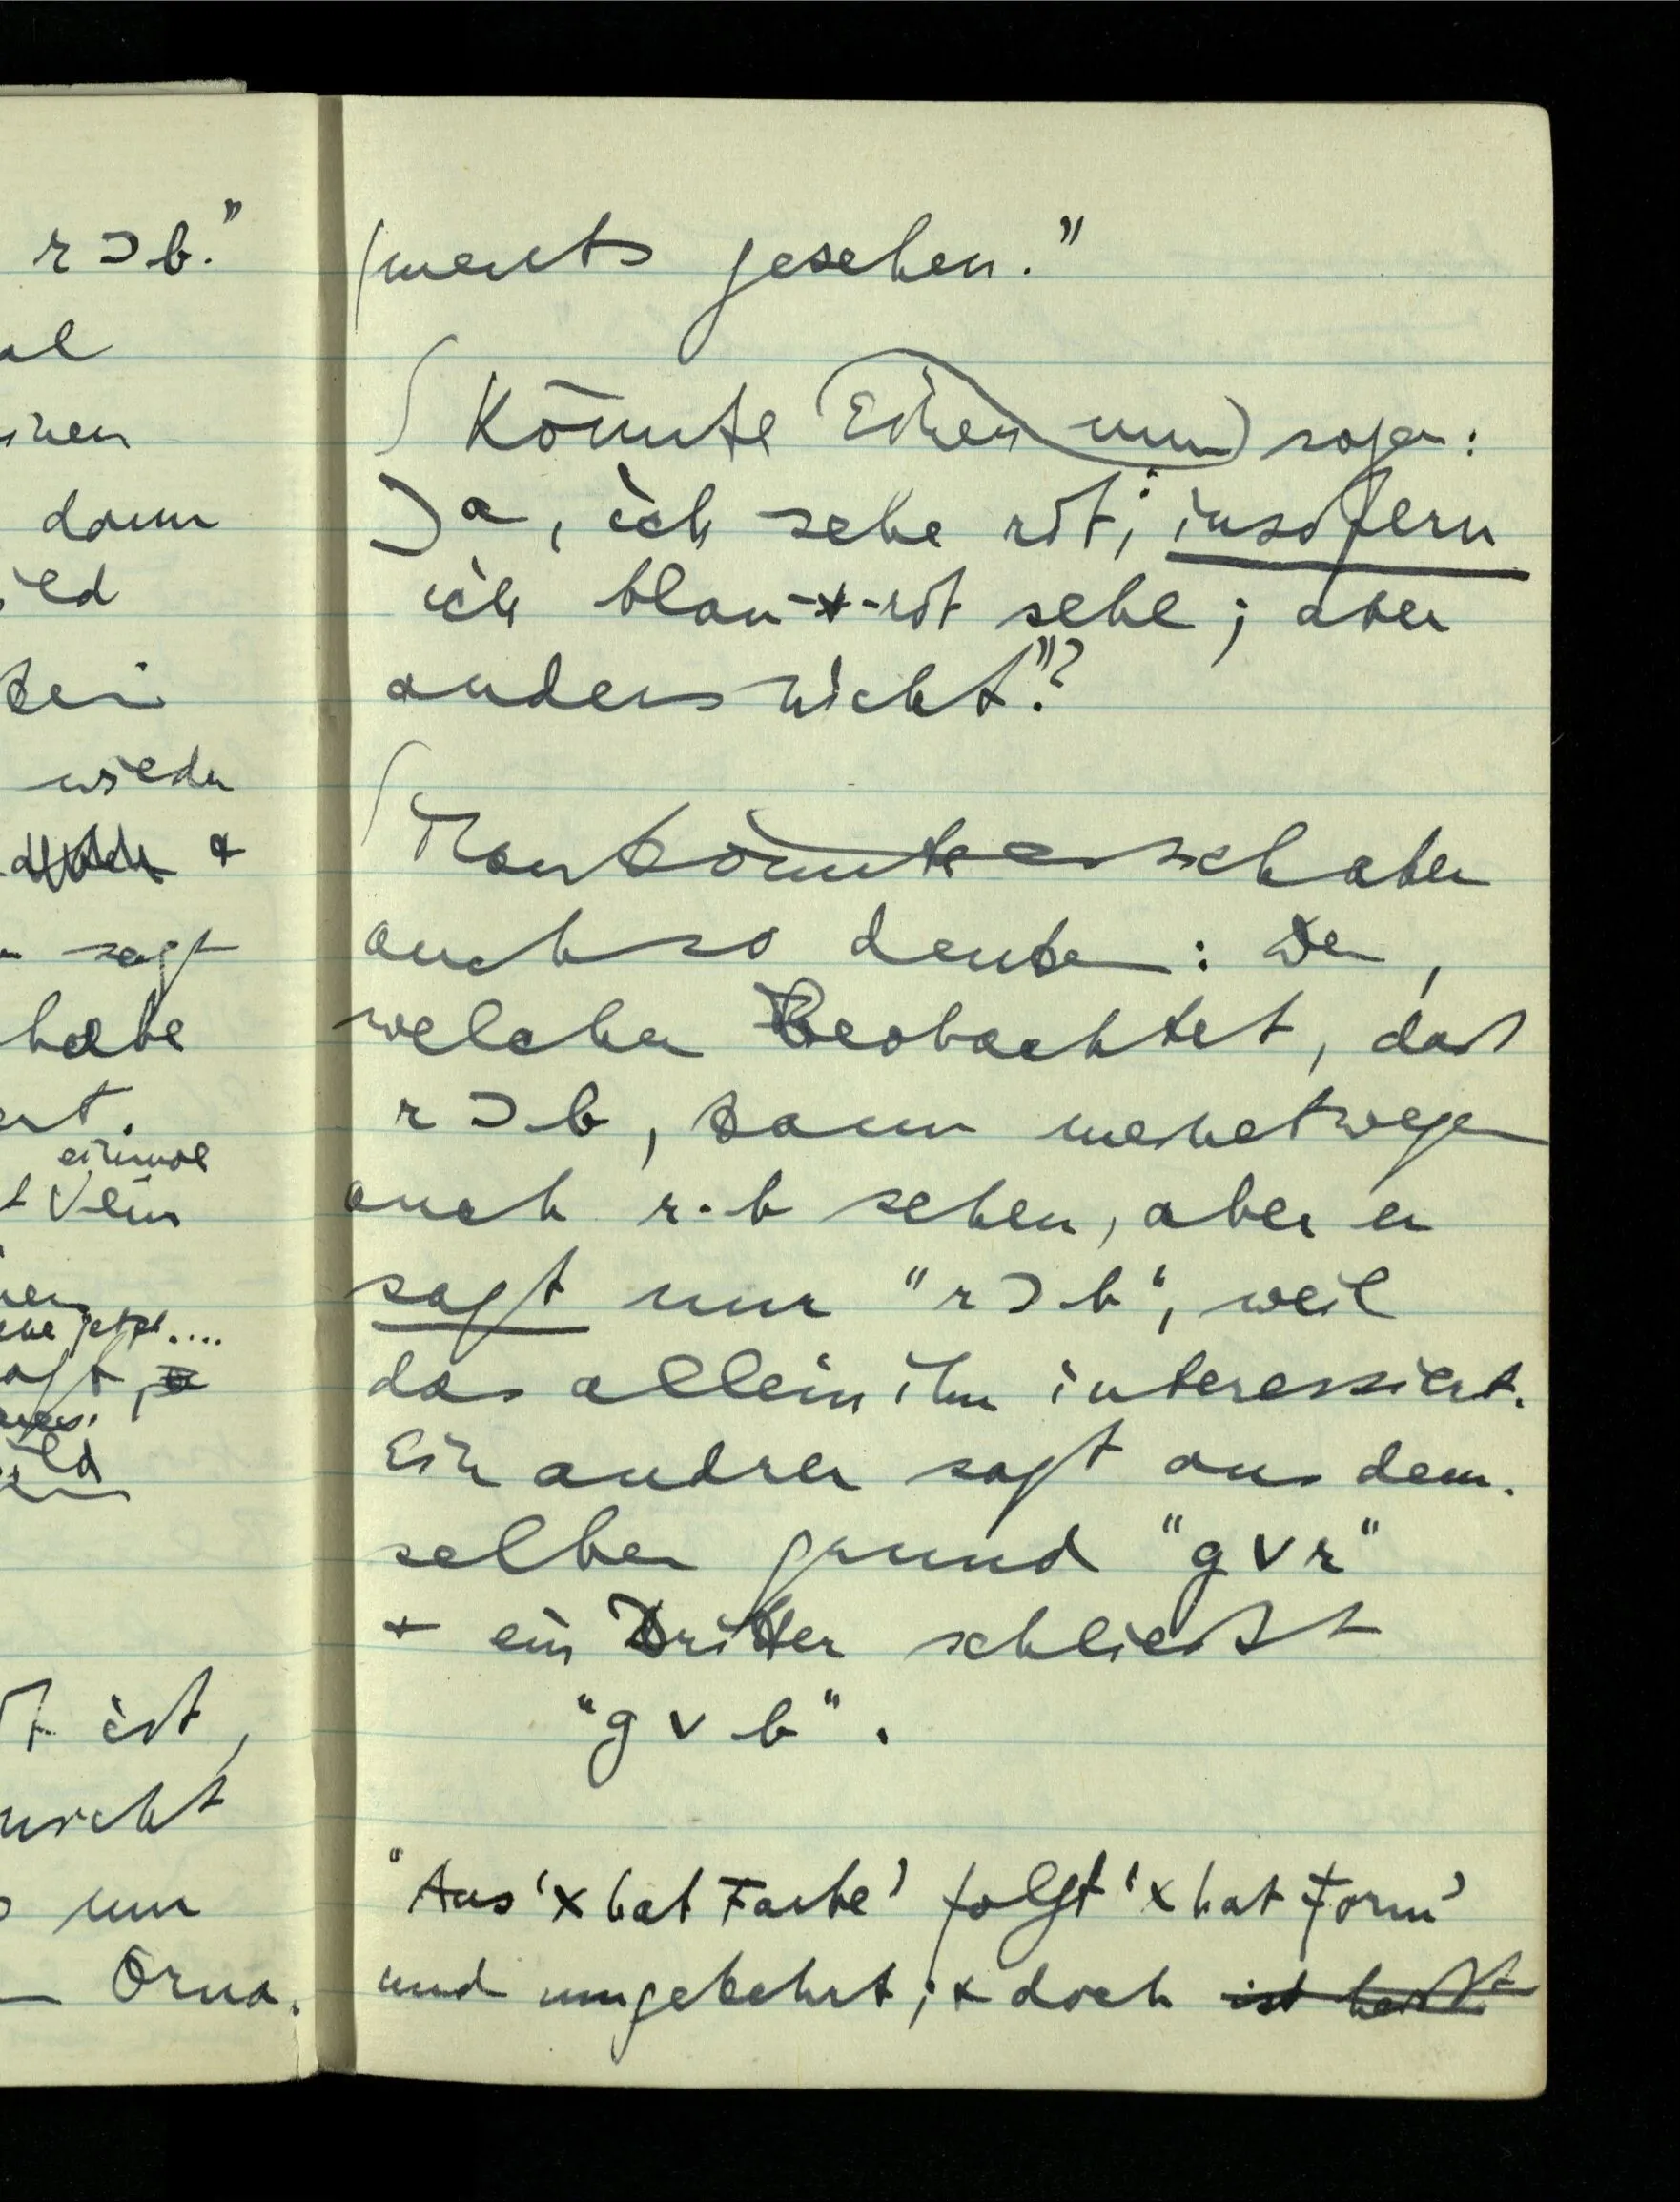 r ⊃ b."
al
inen
dann
ild
wieder
+
sagt
habe
ert.
einmal
t ein
jetzt....
ild
ist,
nicht
nun
Orna-
ments gesehen."
Könnte Einer nun sagen:
Ja, ich sehe rot; insofern
ich blau-+-rot sehe; aber
anders nicht"?
Man könnte es sich aber
auch so denken: Der,
welcher Beobachtet, daß
r ⊃ b, kann meinetwegen
auch r.b sehen, aber er
sagt nur "r ⊃ b", weil
das allein ihn interessiert.
Ein andrer sagt aus dem-
selben Grund "g v r"
+ ein Dritter schließt
"g v b".
"Aus 'x hat Farbe' folgt 'x hat Form'
und umgekehrt; + doch ist heißt